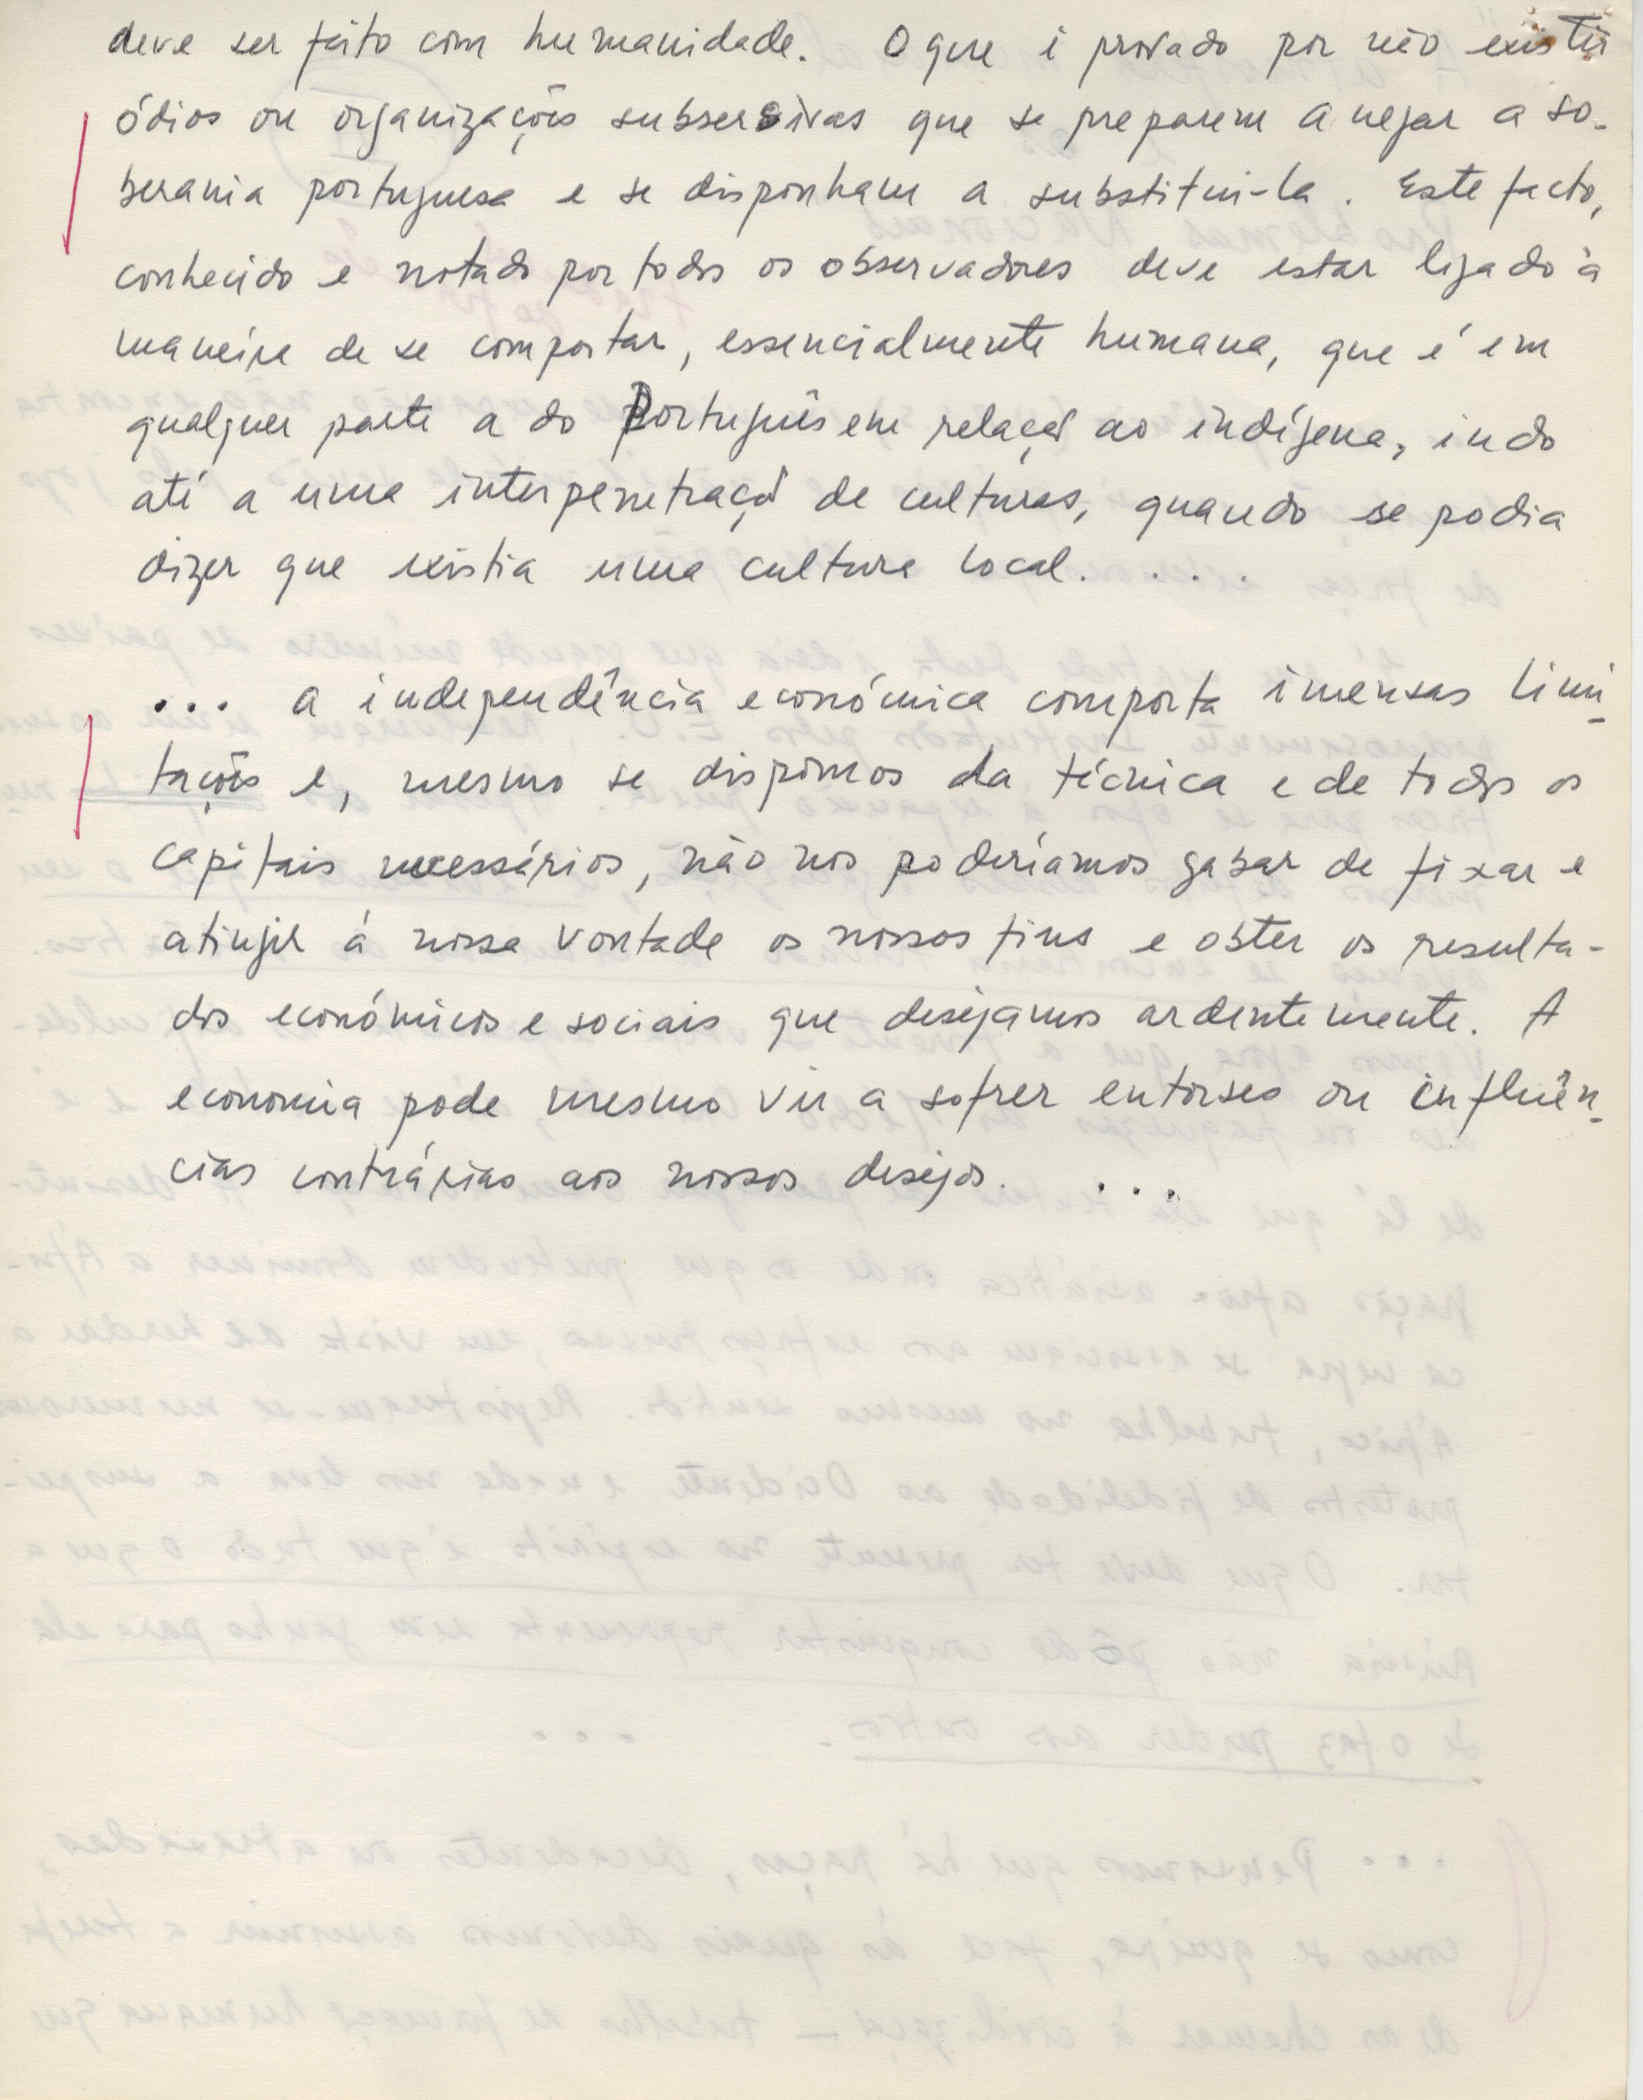 deve ser feito com humanidade. O que é provado por não existir
ódios ou organizações subversivas que se preparem a negar a so-
berania portuguesa e se disponham a substituí-la. Este facto,
conhecido e notado por todos os observadores deve estar ligado à
maneira de se comportar, essencialmente humana, que é em
qualquer parte a do Português em relação ao indígena, indo
até a uma interpenetração de culturas, quando se podia
dizer que existia uma cultura local. . . .
... a independência económica comporta imensas limi-
tações e, mesmo se dispomos da técnica e de todos os
capitais necessários, não nos poderíamos gabar de fixar e
atingir á nossa vontade os nossos fins e obter os resulta-
dos económicos e sociais que desejamos ardentemente. A
economia pode mesmo vir a sofrer entorses ou influên-
cias contrárias aos nossos desejos. ...